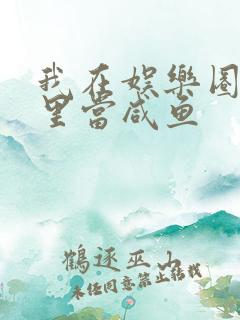 我在娱樂圈
里當咸鱼
鶴逐巫山
未经同意禁止转载